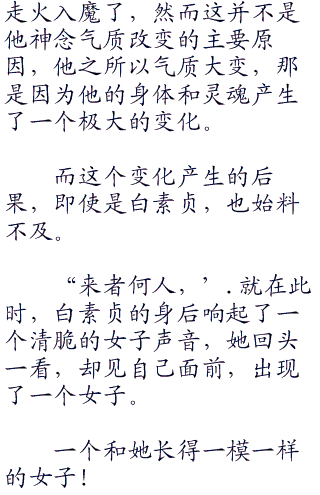 走火入魔了，然而这并不是
他神念气质改变的主要原
因，他之所以气质大变，那
是因为他的身体和灵魂产生
了一个极大的变化。
而这个变化产生的后
果，即使是白素贞，也始料
不及。
“来者何人，’.就在此
时，白素贞的身后响起了一
个清脆的女子声音，她回头
一看，却见自己面前，出现
了一个女子。
一个和她长得一模一样
的女子！